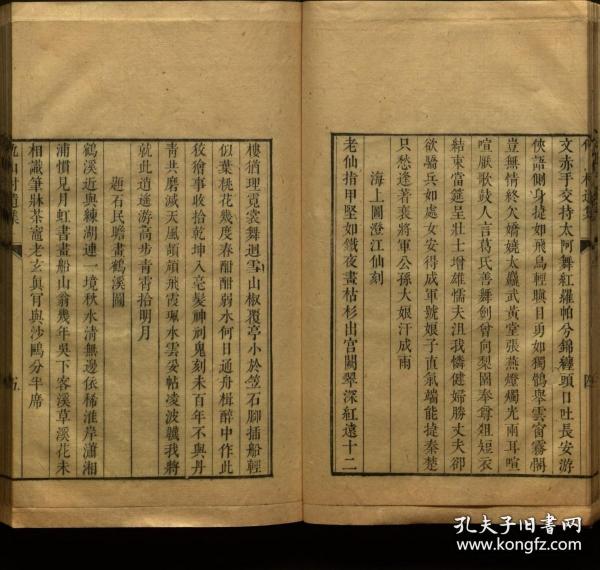 文赤手交持太阿舞紅羅帕兮錦纏頭口吐長安游
俠語側身捷如飛鳥輕瞋目勇如獨鶻舉雲窗霧閣
豈無情終欠嬌嬈太麤武黃堂張燕燈燭光兩耳喧
喧厭歌鼓人言葛氏善舞劍曾向梨園奉尊俎短衣
結束當筵呈壯士增雄懦夫沮我憐健婦勝丈夫卻
欲驕兵如處女安得成軍號娘子直氣端能捷秦楚
只愁逢着裴將軍公孫大娘汗成雨
海上圖澄江仙刻
老仙指甲堅如鐵夜畫枯杉出宮闕翠深紅遠十二
四
樓猶理霓裳舞迴雪山椒覆亭小於笠石腳插船輕
似葉桃花幾度春酣酣弱水何日通舟楫醉中作此
狡獪事收拾乾坤入毫髮神剜鬼刻未百年不與丹
青共磨滅天風頏頏飛霞珮水雲妥帖凌波韈我將
就此逍遙游高步青霄拾明月
題石民瞻畫鶴溪圖
鶴溪近與練湖連一境秋水清無邊依稀淮岸瀟湘
浦慣見月虹書畫船山翁幾年吳下客溪草溪花未
相識筆牀茶竈老玄真肎與沙鷗分半席
五
孔夫子旧书网
www.kongfz.com
孔夫子旧书网
www.kongfz.com